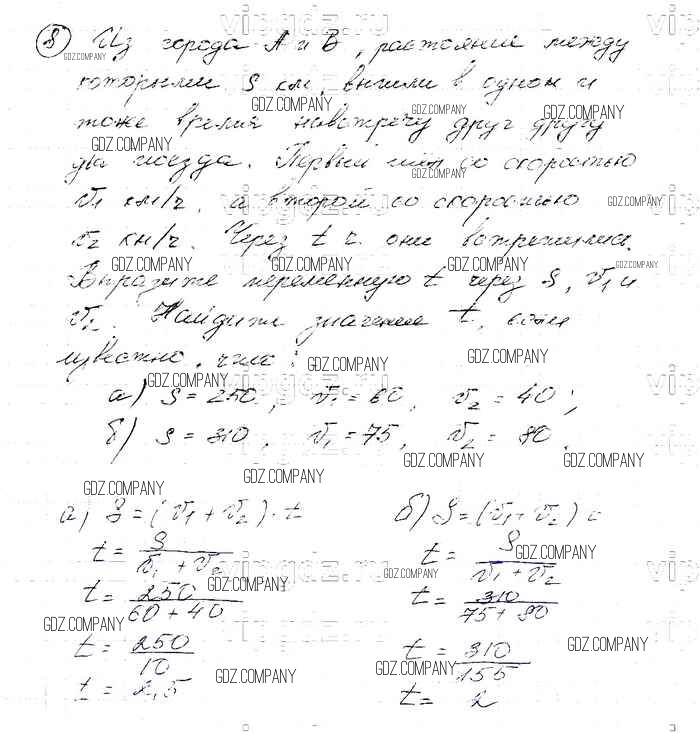 8) Из города А и В, растояние между
которыми S км, вышли в одном и
тоже время навстречу друг другу
два поезда. Первый шёл со скоростью
v1 км/ч, а второй со скоростью
v2 км/ч. Через t ч. они встретились.
Выразите переменную t через S, v1 и
v2. Найдите значение t, если
известно, что:
а) S = 250, v1 = 60, v2 = 40;
б) S = 310, v1 = 75, v2 = 80.
а) S = (v1 + v2) · t
t = S / (v1 + v2)
t = 250 / (60 + 40)
t = 250 / 10
t = 2,5
б) S = (v1 + v2)
t = S / (v1 + v2)
t = 310 / (75 + 80)
t = 310 / 155
t = 2
GDZ.COMPANY
vipgdz.ru